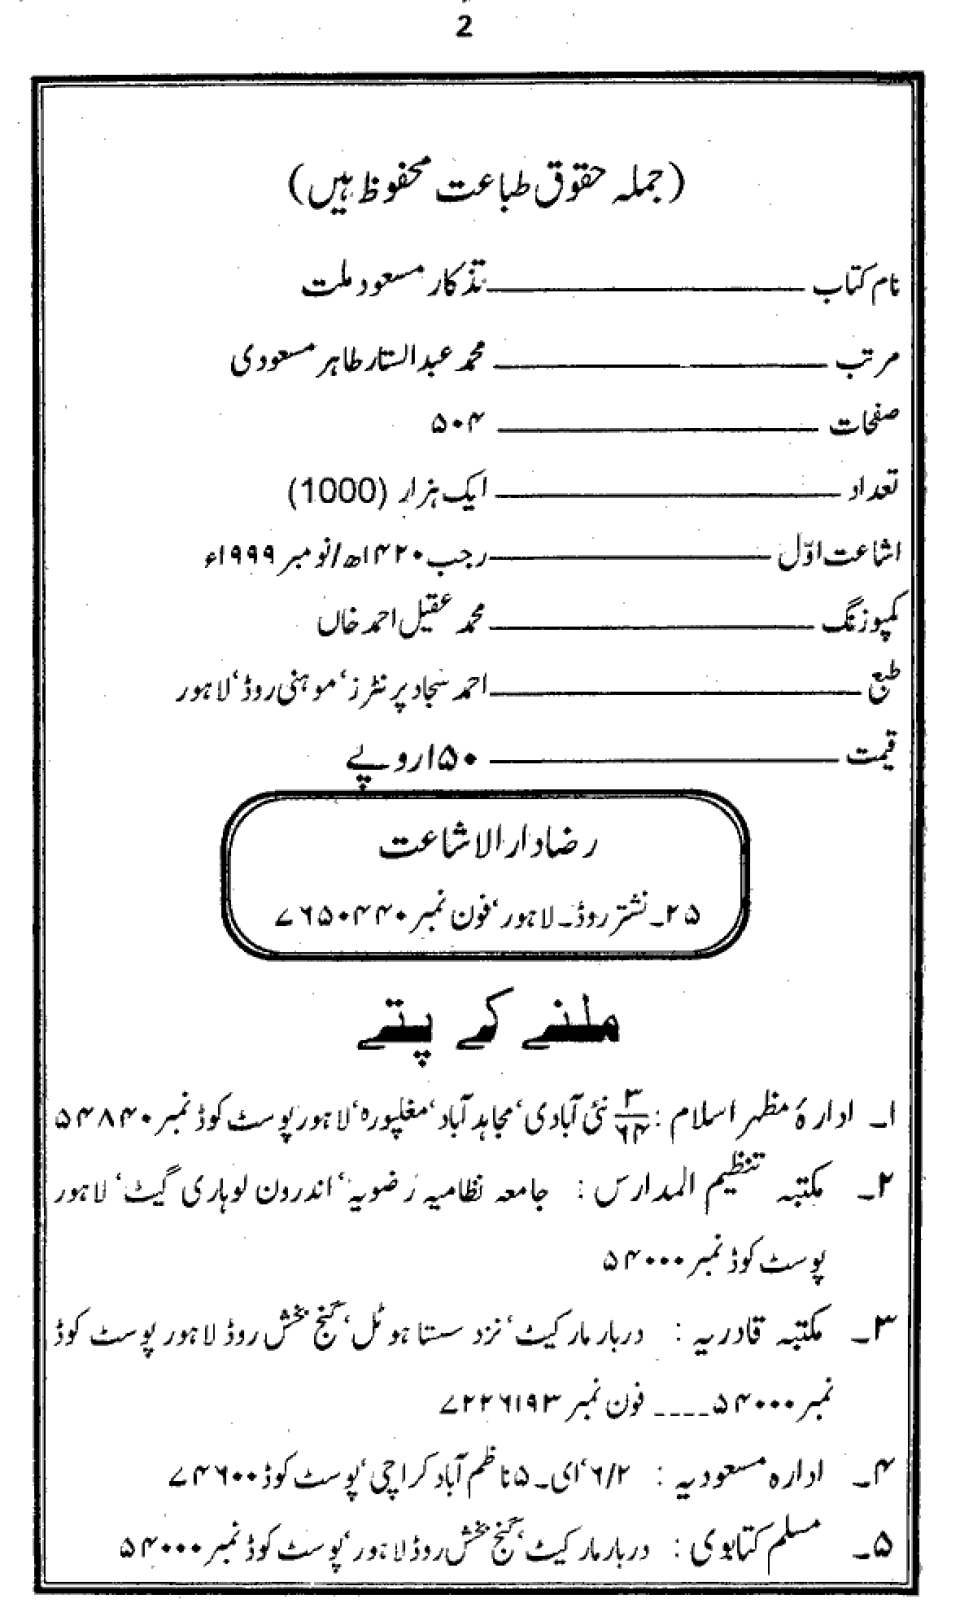 2
(جملہ حقوق طباعت محفوظ ہیں)
نام کتاب ــــــــــــ تذکار مسعود ملت
مرتب ــــــــــــ محمد عبدالستار طاہر مسعودی
صفحات ــــــــــــ ۵۰۴
تعداد ــــــــــــ ایک ہزار (1000)
اشاعت اوّل ــــــــــــ رجب ۱۴۲۰ھ/نومبر ۱۹۹۹ء
کمپوزنگ ــــــــــــ محمد عقیل احمد خاں
طبع ــــــــــــ احمد سجاد پرنٹرز، موہنی روڈ، لاہور
قیمت ــــــــــــ ۱۵۰ روپے
رضا دار الاشاعت
۲۵۔ نشتر روڈ۔ لاہور، فون نمبر ۷۶۵۰۴۴۰
ملنے کے پتے
۱۔ ادارۂ مظہر اسلام : ۳/۶۴ نئی آبادی، مجاہد آباد، مغلپورہ، لاہور پوسٹ کوڈ نمبر ۵۴۸۴۰
۲۔ مکتبہ تنظیم المدارس : جامعہ نظامیہ رضویہ، اندرون لوہاری گیٹ، لاہور
پوسٹ کوڈ نمبر ۵۴۰۰۰
۳۔ مکتبہ قادریہ : دربار مارکیٹ، نزد سستا ہوٹل، گنج بخش روڈ لاہور پوسٹ کوڈ
نمبر ۵۴۰۰۰ ---- فون نمبر ۷۲۲۶۱۹۳
۴۔ ادارہ مسعودیہ : ۶/۲، ای۔ ۵ ناظم آباد کراچی، پوسٹ کوڈ ۷۴۶۰۰
۵۔ مسلم کتابوی : دربار مارکیٹ، گنج بخش روڈ لاہور، پوسٹ کوڈ نمبر ۵۴۰۰۰